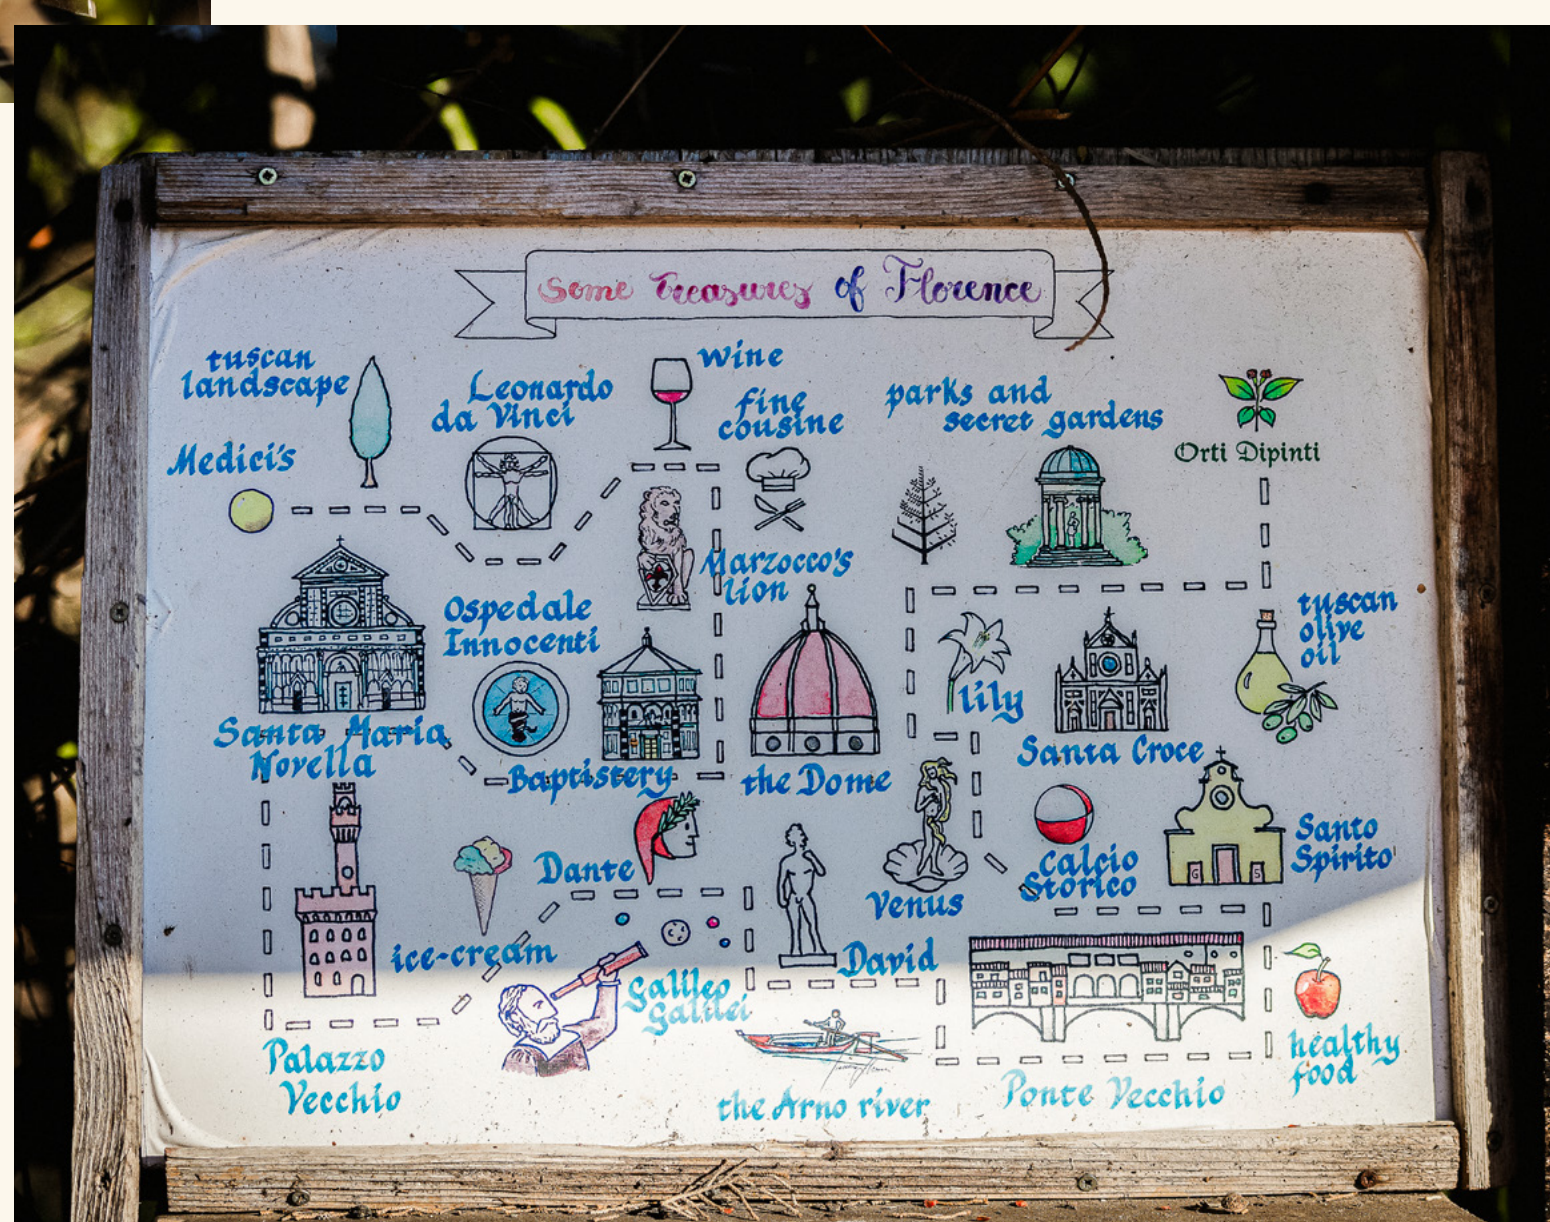 Some Treasures of Florence
tuscan
landscape
Leonardo
da Vinci
wine
fine
cousine
parks and
secret gardens
Orti Dipinti
Medici's
Marzocco's
lion
Ospedale
Innocenti
tuscan
olive
oil
lily
Santa Maria
Novella
Baptistery
the Dome
Santa Croce
Dante
Venus
Calcio
Storico
Santo
Spirito
ice-cream
David
Galileo
Galilei
Palazzo
Vecchio
the Arno river
Ponte Vecchio
healthy
food
G S